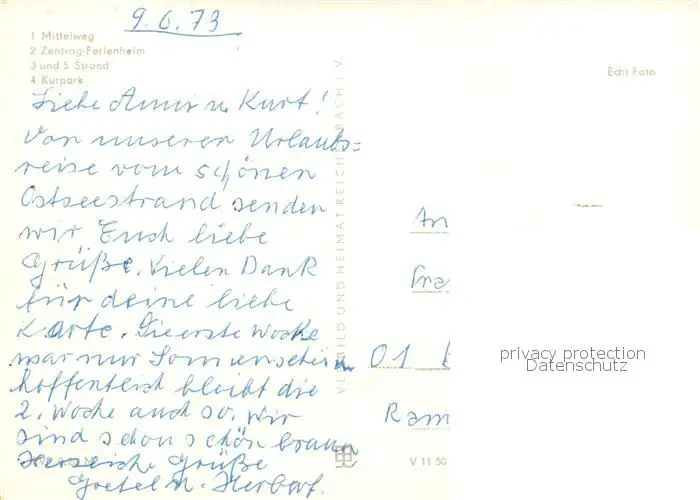 9.6.73
1 Mittelweg
2 Zentrag-Ferienheim
3 und 5 Strand
4 Kurpark
Echt Foto
Liebe Anni u. Kurt!
Von unserer Urlaubs=
reise vom schönen
Ostseestrand senden
wir Euch liebe
Grüße. Vielen Dank
für deine liebe
Karte. Die erste Woche
war nur Sonnenschein
hoffentlich bleibt die
2. Woche auch so. Wir
sind schon schön braun
Herzliche Grüße
Gretel u. Herbert.
VERLAG BILD UND HEIMAT REICHENBACH I. V.
An
Fra
01
Ram
V 11 50
privacy protection
Datenschutz